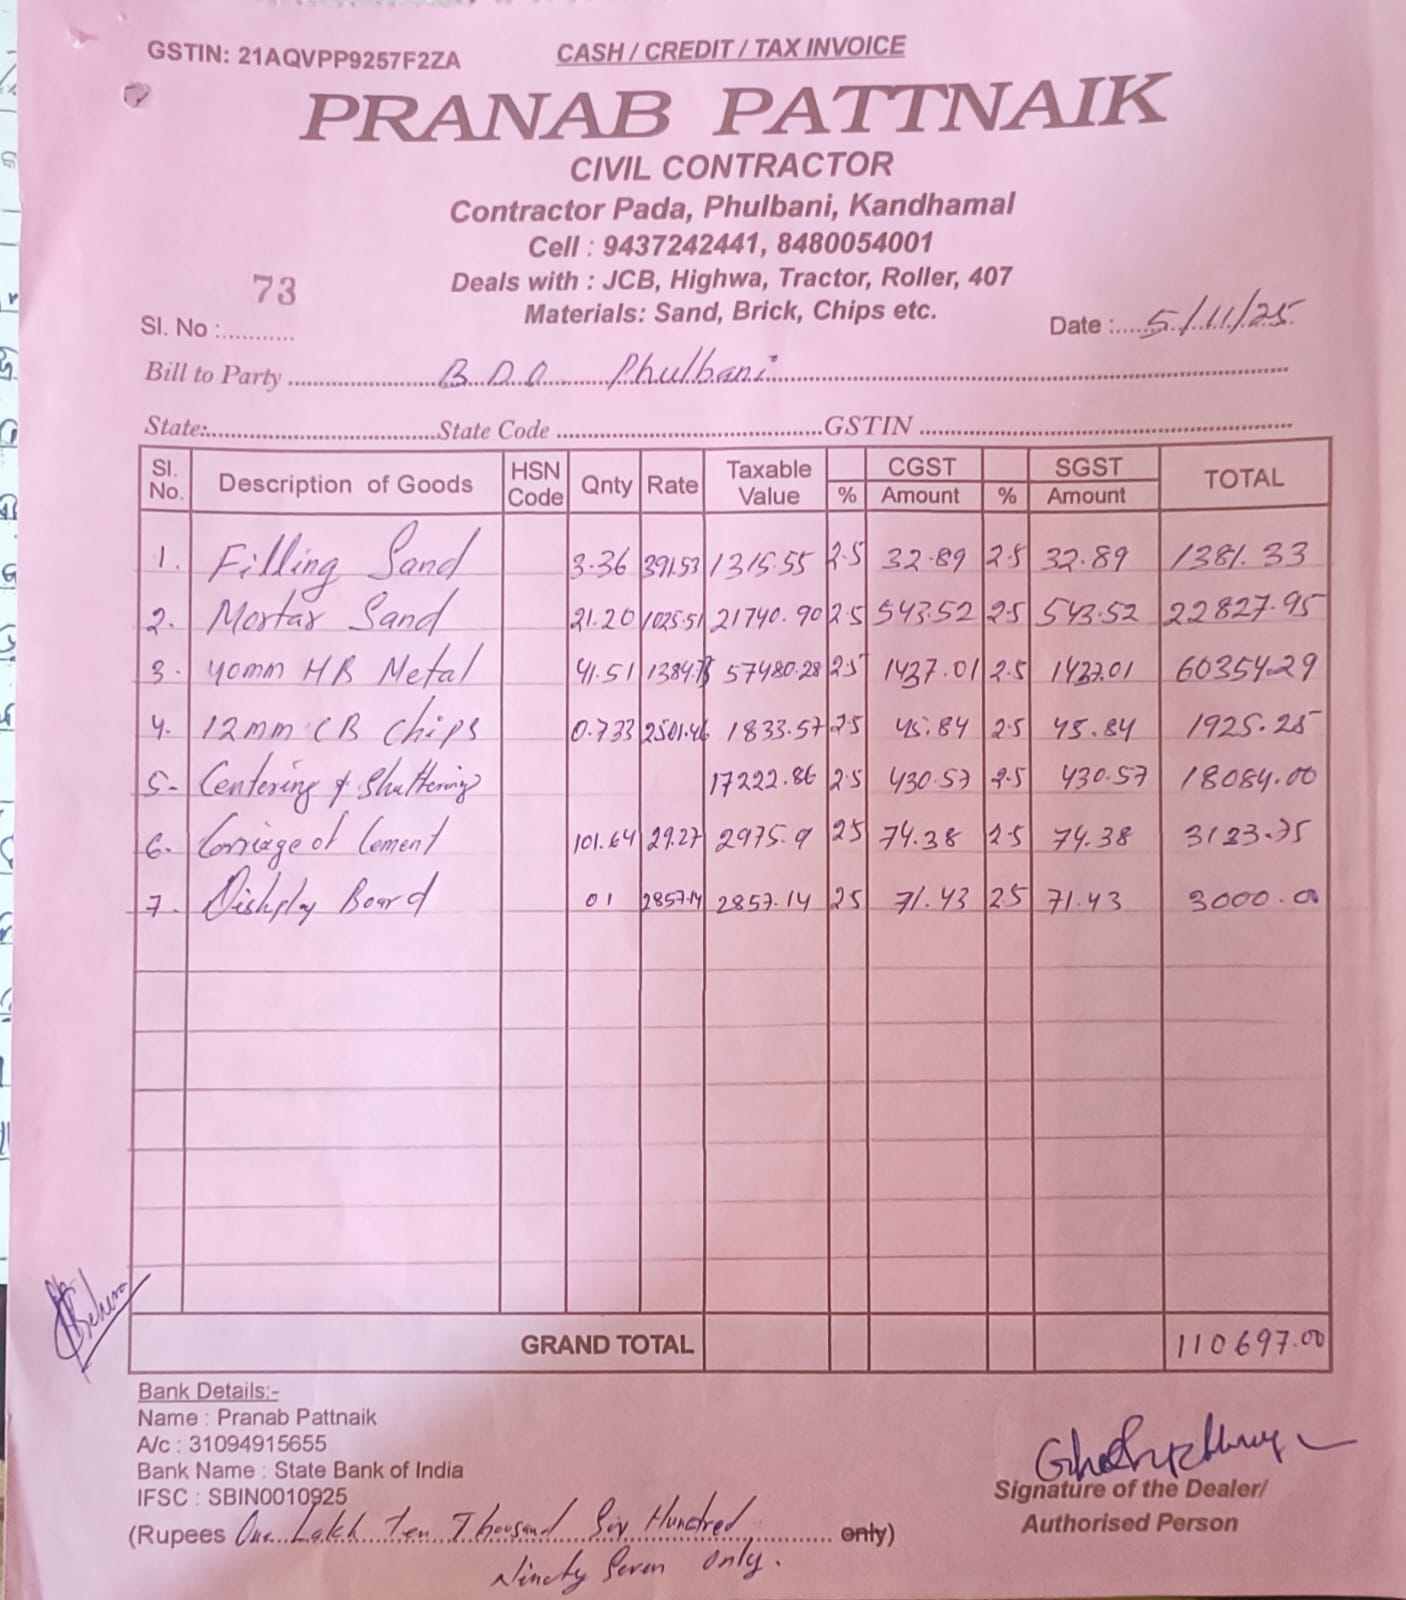 GSTIN: 21AQVPP9257F2ZA CASH / CREDIT / TAX INVOICE
PRANAB PATTNAIK
CIVIL CONTRACTOR
Contractor Pada, Phulbani, Kandhamal
Cell : 9437242441, 8480054001
Deals with : JCB, Highwa, Tractor, Roller, 407
Materials: Sand, Brick, Chips etc.
73
Sl. No :............ Date :.....5/11/25
Bill to Party ..................B D O Phulbani..................
State:..................State Code ..................GSTIN ..................
Sl. No. Description of Goods HSN Code Qnty Rate Taxable Value % CGST Amount % SGST Amount TOTAL
1. Filling Sand 3.36 391.53 1315.55 2.5 32.89 2.5 32.89 1381.33
2. Mortar Sand 21.20 1025.51 21740.90 2.5 543.52 2.5 543.52 22827.95
3. 40mm HB Metal 41.51 1384.73 57480.28 2.5 1437.01 2.5 1437.01 60354.29
4. 12mm CB Chips 0.733 2501.46 1833.57 2.5 45.84 2.5 45.84 1925.25
5- Centering & Shuttering 17222.86 2.5 430.57 2.5 430.57 18084.00
6. Carriage of Cement 101.64 29.27 2975.9 2.5 74.38 2.5 74.38 3123.75
7. Dishplay Board 01 2857.14 2857.14 2.5 71.43 2.5 71.43 3000.00
GRAND TOTAL 110697.00
Bank Details:-
Name : Pranab Pattnaik
A/c : 31094915655
Bank Name : State Bank of India
IFSC : SBIN0010925
Signature of the Dealer/
Authorised Person
(Rupees One Lakh Ten Thousand Six Hundred only)
Ninety Seven Only.